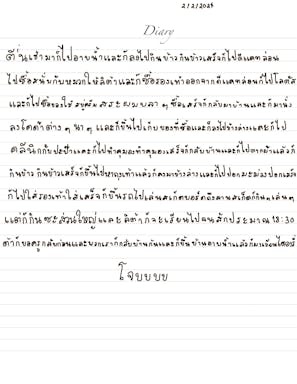 2/2/2025
Diary
ตื่นเช้ามาก็ไปอาบน้ำและก็ลงไปกินข้าวกินข้าวเสร็จก็ไปดีแคทลอน
ไปซื้อสนับกับหมวกให้ลิต้าและก็ซื้อรองเท้าออกจากดีแคทลอนก็ไปโลตัส
และก็ไปซื้อของใช้ สบู่ครีม สระผม ซื้อเสร็จก็กลับมาบ้านและก็มานั่ง
ลงโตต้าต่าง ๆ นา ๆ และก็ขึ้นไปเก็บของที่ซื้อและก็ลงไปข้างล่าง ก็ไป
คลินิกกับป๊ะป๊าและก็ไปทำคุมอง เสร็จก็กลับบ้านและก็ไปตากผ้าแล้วก็
กินข้าว กินข้าวเสร็จก็ขึ้นไป แล้วก็ลงมาข้างล่างและก็ไปปอกมะม่วงปอกเสร็จ
ก็ไปใส่รองเท้าใส่เสร็จก็ขึ้นรถไปเล่นสเก็ตบอร์ดถึงลานสเก็ตก็
แต่ก็กินซะส่วนใหญ่และลิต้าก็จะเรียนไปจนสักประมาณ 18:30
ต้าก็บอกครูกลับก่อนและพวกเราก็กลับบ้านกันและก็ขึ้นบ้านอาบน้ำแล้วก็มาเขียนไดอารี่
โจบบบบ